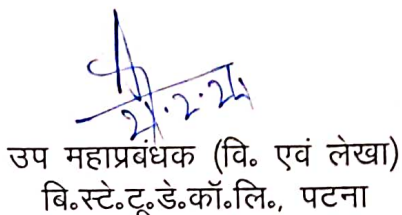 उप महाप्रबंधक (वि॰ एवं लेखा)
बि॰स्टे॰टू॰डे॰कॉ॰लि॰, पटना